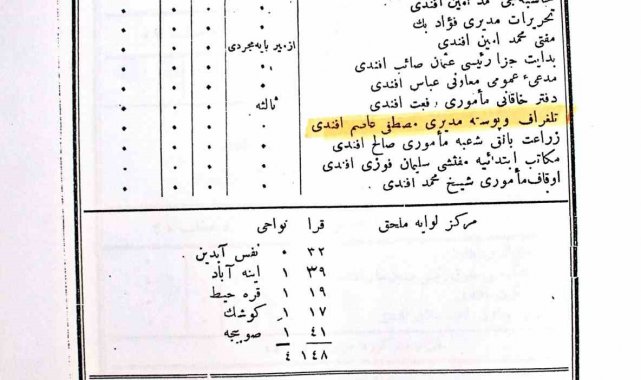 محمد امين افندی
تحريرات مديری فؤاد بك
مفتی محمد امين افندی ازمير پايه مجردی
بدايت جزا رئيسی عثمان صائب افندی
مدعئ عمومی معاونی عباس افندی
دفتر خاقانی مأموری رفعت افندی ثالثه
تلغراف وپوسته مديری مصطفی عاصم افندی
زراعت بانق شعبه مأموری صالح افندی
مكاتب ابتدائيه مفتشی سليمان فوزی افندی
اوقاف مأموری شيخ محمد افندی
مركز لوايه ملحق قرا نواحی
٣٢ ٠ نفس آيدين
٣٩ ١ اينه آباد
١٩ ١ قره حيط
١٧ ١ كوشك
٤١ ١ صوبيجه
١٤٨ ٤